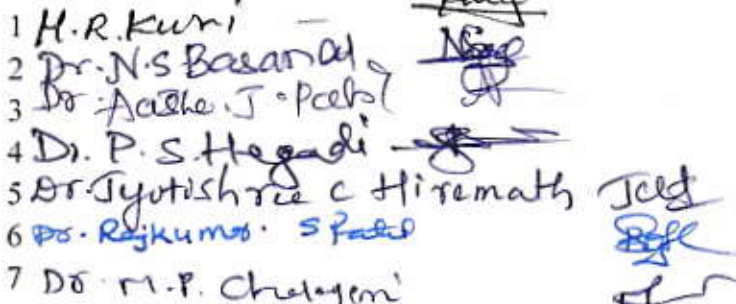 1 H.R.Kuri
2 Dr. N.S Basana
3 Dr. J. Patil
4 Dr. P.S. Hegadi
5 Dr. Jyotishree C Hiremath
6 Dr. Rajkumar S Patil
7 Dr M.P. Chalageri